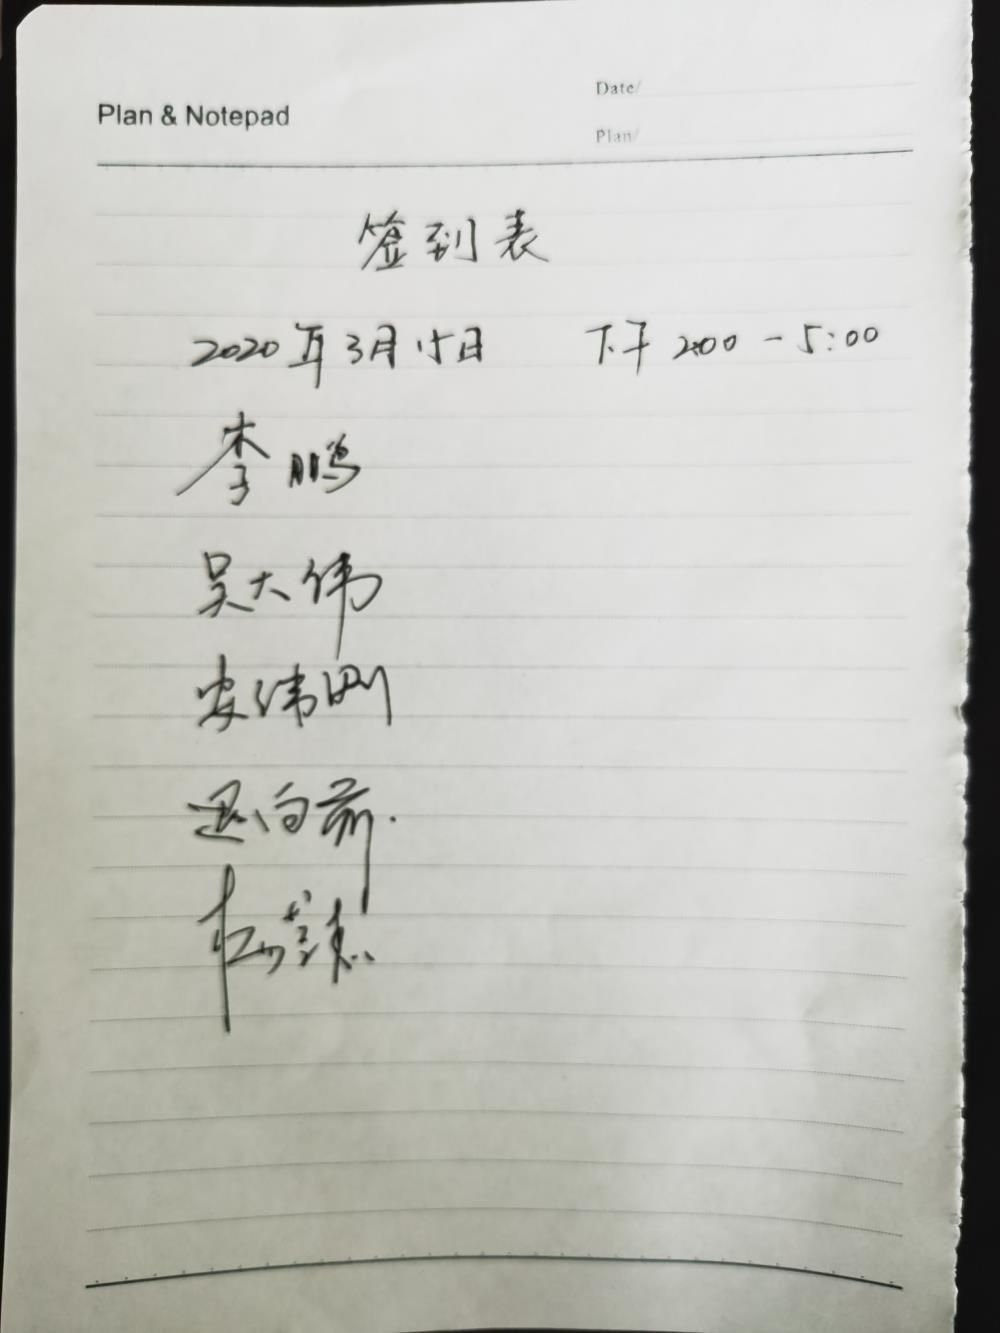 Plan & Notepad
Date/
Plan/
签到表
2020年3月15日 下午 2:00 - 5:00
李鹏
吴大伟
安伟刚
向前.
杨